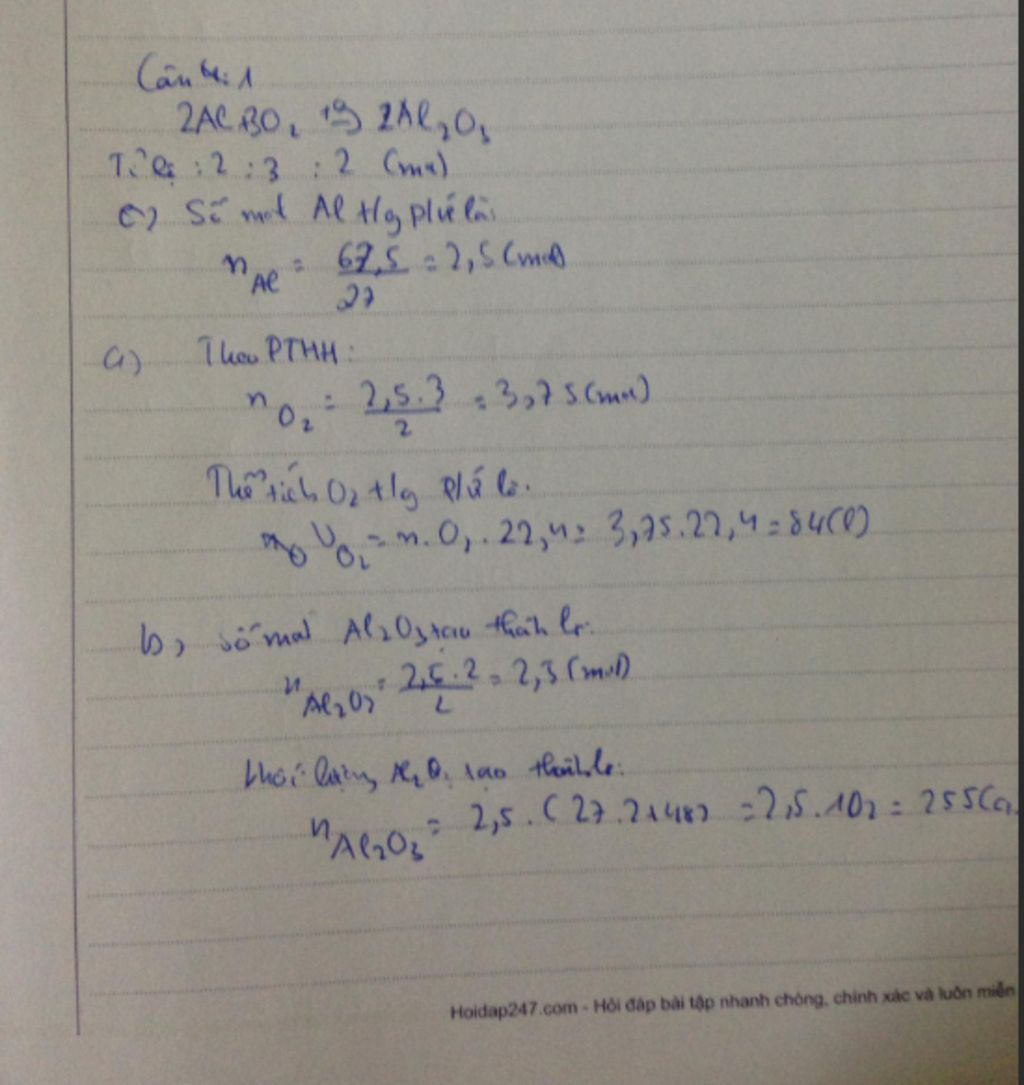 Câu hỏi 1
2Al 3O₂ tº→ 2Al₂O₃
Tỉ lệ : 2 : 3 : 2 (mol)
Số mol Al t/g p/ứ là:
n Al = 67,5 / 27 = 2,5 (mol)
a) Theo PTHH:
n O₂ = 2,5 . 3 / 2 = 3,75 (mol)
Thể tích O₂ t/g p/ứ là.
V O₂ = n . O₂ . 22,4 = 3,75 . 22,4 = 84 (l)
b, số mol Al₂O₃ tạo thành là:
n Al₂O₃ = 2,5 . 2 / 2 = 2,5 (mol)
khối lượng Al₂O₃ tạo thành là:
n Al₂O₃ = 2,5 . (27 . 2 + 48) = 2,5 . 102 = 255 (
Hoidap247.com - Hỏi đáp bài tập nhanh chóng, chính xác và luôn miễn